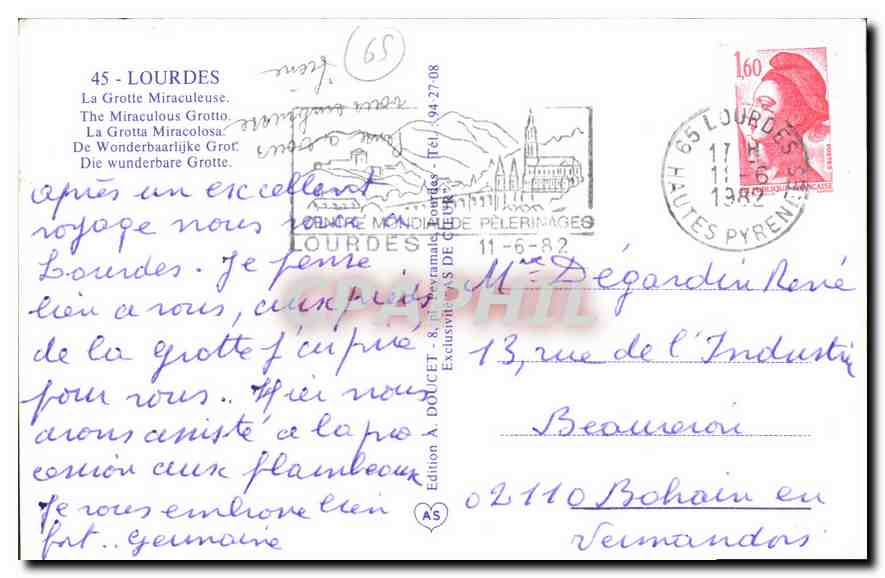 45 - LOURDES
La Grotte Miraculeuse.
The Miraculous Grotto.
La Grotta Miracolosa.
De Wonderbaarlijke Grot.
Die wunderbare Grotte.
59
après un excellent
voyage nous voici à
Lourdes. Je pense
bien a vous, aux pieds
de la grotte j'ai prié
pour vous.. Hier nous
avons assisté a la pro
cession aux flambeaux
Je vous embrasse bien
fort.. Germaine
Edition A. DOUCET - 8, pl. Peyramale, Lourdes - Tél. : 94-27-08
Exclusivité "AS DE CŒUR"
AS
CENTRE MONDIAL DE PÈLERINAGES
LOURDES 11-6-82
1,60
POSTES
REPUBLIQUE FRANCAISE
65 LOURDES
17 H
11-6
1982
HAUTES PYRENEES
CPAPHIL
Mme Dégardin René
13, rue de l'Industrie
Beaurevoir
02110 Bohain en
Vermandois